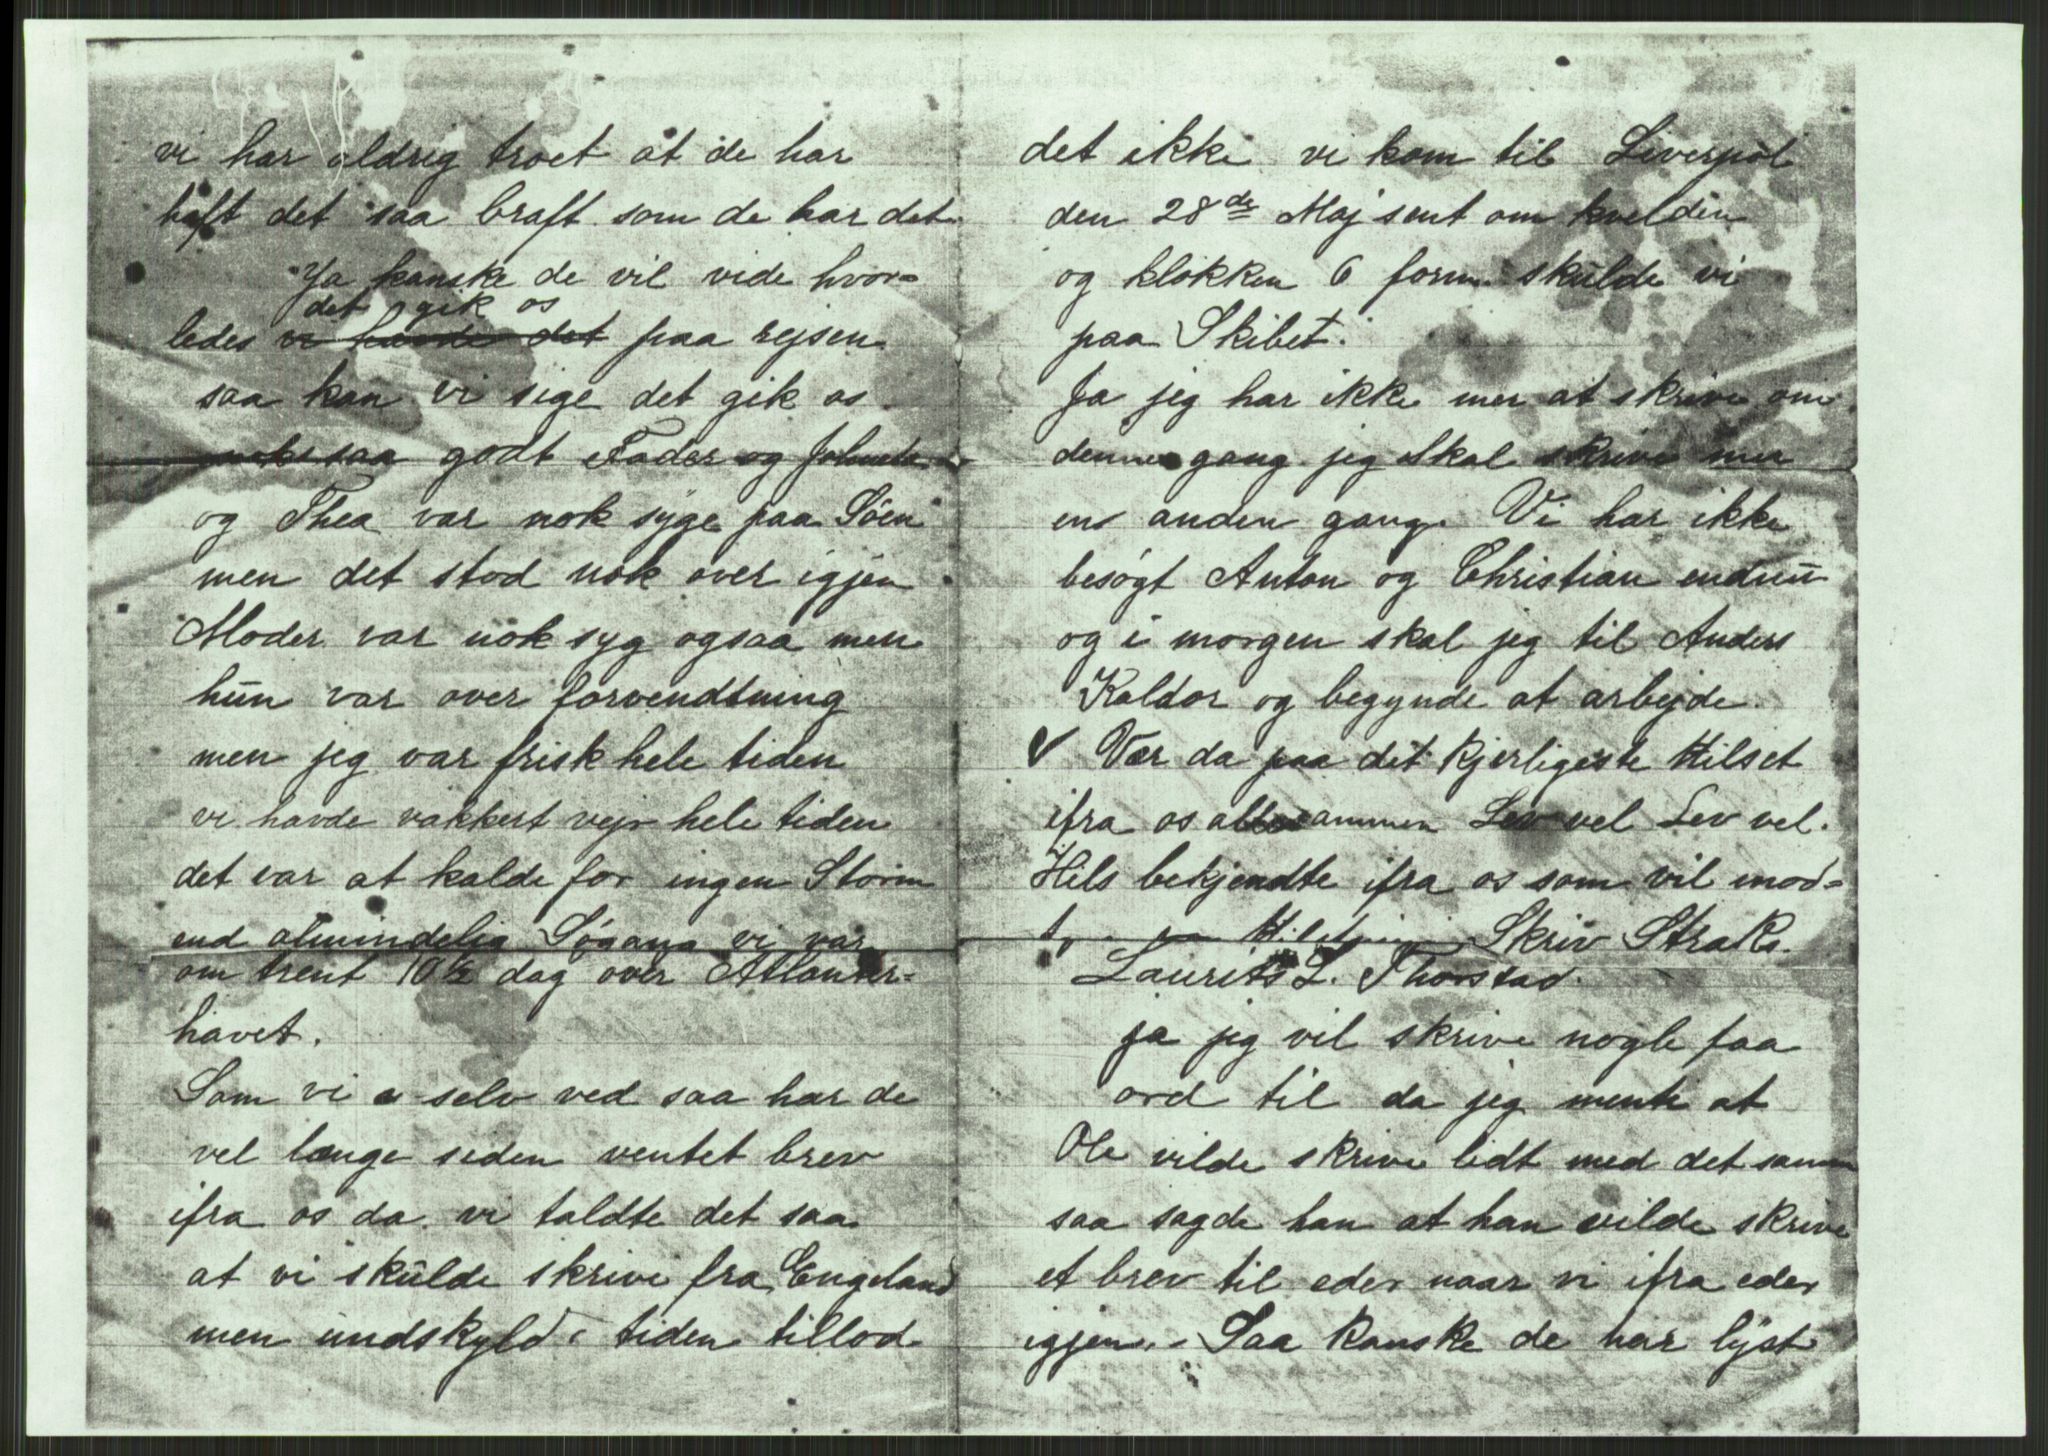 vi har aldrig troet at de har
haft det saa braft som de har det
Ja kanske de vil vide hvor-
det gik os
ledes vi havde det paa rejsen
saa kan vi sige det gik os
noksaa godt Fader og
og Thea var nok syge paa Söen
men det stod nok over igjen
Moder var nok syg ogsaa men
hun var over forvendtning
men jeg var frisk hele tiden
vi havde vakkert vejr hele tiden
det var at kalde for ingen Storm
end almindelig Søgang vi var
om trent 10½ dag over Atlanter-
havet.
Som vi selv ved saa har de
vel længe siden ventet brev
ifra os da vi taldte det saa
at vi skulde skrive fra Engeland
men undskyld tiden tillod
det ikke vi kom til Liverpol
den 28de Maj sent om kvelden
og klokken 6 form skulde vi
paa Skibet.
Ja jeg har ikke mer at skrive om
denne gang jeg skal skrive mer
en anden gang. Vi har ikke
besøgt Anton og Christian endnu
og i morgen skal jeg til Anders
Kaldor og begynde at arbejde.
Vær da paa det kjerligeste Hilset
ifra os allesammen Lev vel Lev vel.
Hils bekjendte ifra os som vil mod-
Skriv Straks.
Laurits L. Thorstad.
ja jeg vil skrive nogle faa
ord til da jeg mente at
Ole vilde skrive lidt med det samme
saa sagde han at han vilde skrive
et brev til eder naar vi ifra eder
igjen. - Saa kanske de har lyst